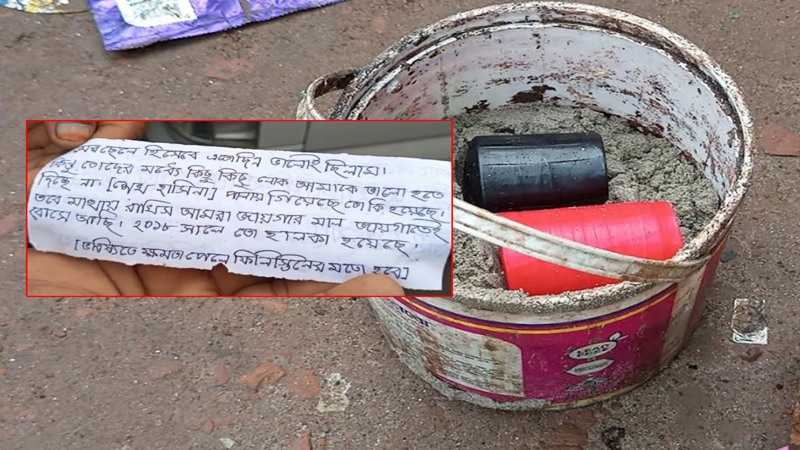 মেয়েছেলে হিসেবে এতদিন ভালোই ছিলাম।
কিন্তু তোদের মধ্যে কিছু কিছু লোক আমাকে ভালো হতে
দিচ্ছে না। [শেখ হাসিনা] পালায় গিয়েছে তো কি হয়েছে।
তবে মাথায় রাখিস আমরা জায়গার মাল জায়গাতেই
বসে আছি। ২০১৮ সালে তো হালকা হয়েছে।
[ভবিষ্যতে ক্ষমতা পেলে ফিলিস্তিনের মতো হবে]